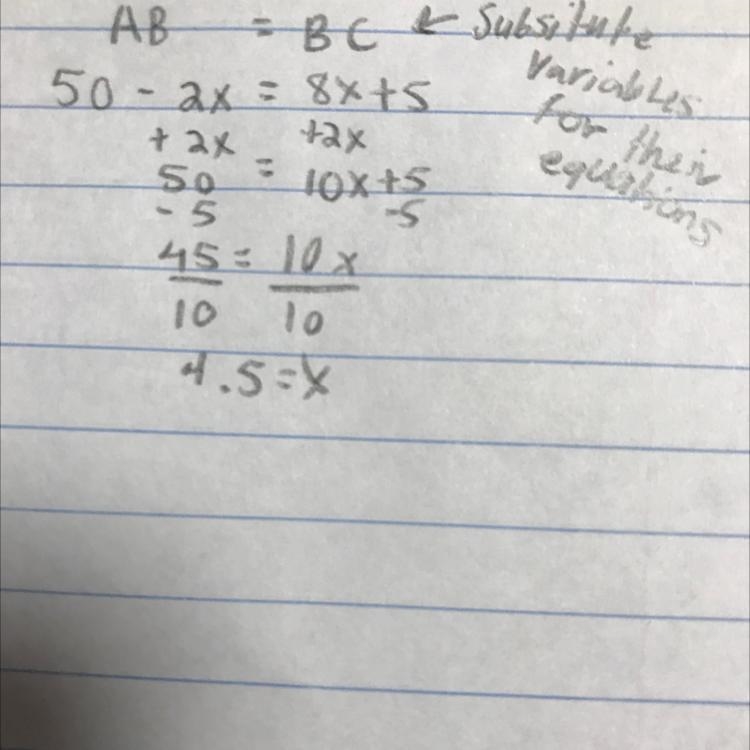 AB = BC ← Subsitute
variables
for their
equations
50 - 2x = 8x+5
+ 2x +2x
50 = 10x+5
- 5 -5
45 = 10x
10 10
4.5=x